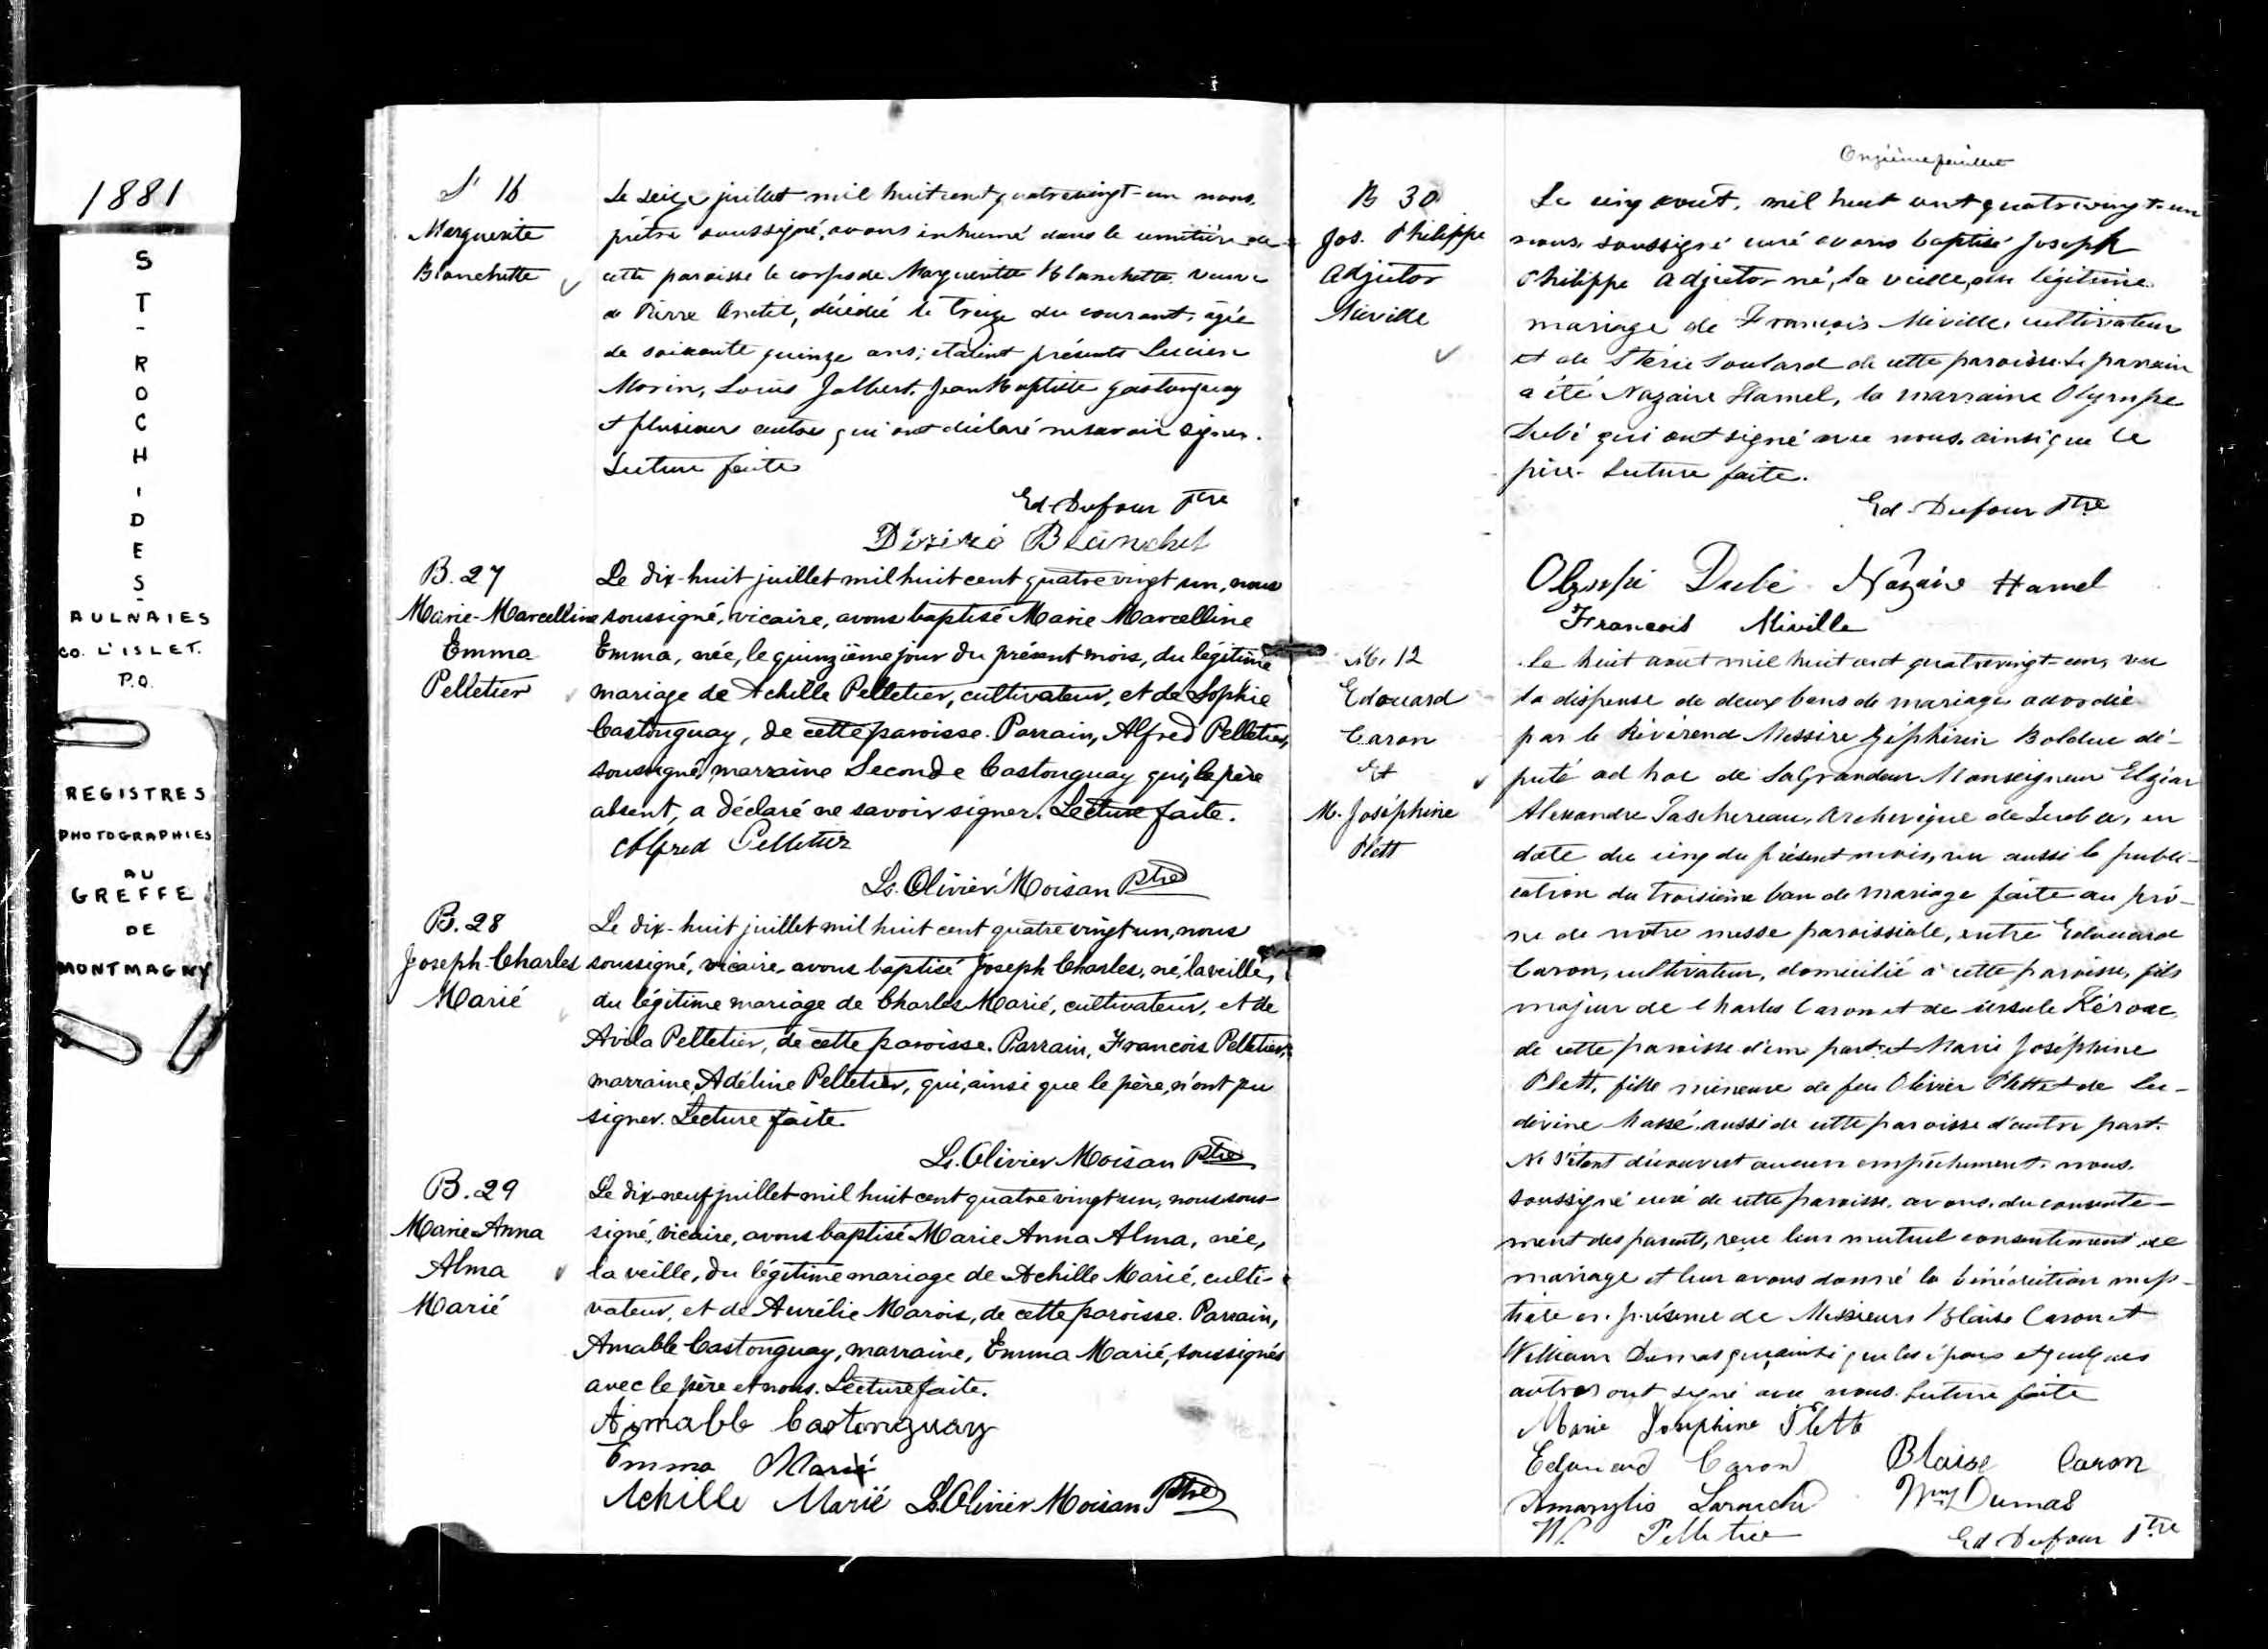 1881
ST-ROCH-DES-
AULNAIES
CO. L'ISLET.
P.Q.
REGISTRES
PHOTOGRAPHIES
AU
GREFFE
DE
MONTMAGNY
S 16
Marguerite
Blanchette
Le seize juillet mil huit cent quatrevingt-un nous,
prêtre soussigné, avons inhumé dans le cimetière de
cette paroisse le corps de Marguerite Blanchette veuve
de Pierre Anctil, décédé le treize du courant, agée
de soixante quinze ans; etaient présents Lucien
Morin, Louis Jalbert, Jean Baptiste Gastonguay
et plusieurs autres qui ont déclaré ne savoir signer.
Lecture faite
Ed. Dufour Ptre
Désiré Blanchet
B. 27
Marie-Marcelline
Emma
Pelletier
Le dix-huit juillet mil huit cent quatre vingt un, nous
soussigné, vicaire, avons baptisé Marie Marcelline
Emma, née, le quinzième jour du présent mois, du légitime
mariage de Achille Pelletier, cultivateur, et de Sophie
Castonguay, de cette paroisse. Parrain, Alfred Pelletier,
soussigné, marraine Seconde Castonguay qui, le père
absent, a déclaré ne savoir signer. Lecture faite.
Alfred Pelletier
Ls. Olivier Moisan Ptre
B. 28
Joseph-Charles
Marié
Le dix-huit juillet mil huit cent quatre vingt un, nous
soussigné, vicaire, avons baptisé Joseph Charles, né, la veille,
du légitime mariage de Charles Marié, cultivateur, et de
Avila Pelletier, de cette paroisse. Parrain, François Pelletier,
marraine, Adéline Pelletier, qui, ainsi que le père, n'ont pu
signer. Lecture faite.
Ls. Olivier Moisan Ptre
B. 29
Marie Anna
Alma
Marié
Le dix-neuf juillet mil huit cent quatre vingt un, nous sous-
signé, vicaire, avons baptisé Marie Anna Alma, née,
la veille, du légitime mariage de Achille Marié, culti-
vateur, et de Aurélie Marois, de cette paroisse. Parrain,
Amable Castonguay, marraine, Emma Marié, soussignés
avec le père et nous. Lecture faite.
Aimable Castonguay
Emma Marié
Achille Marié Ls. Olivier Moisan Ptre
Onzième feuillet
B 30
Jos. Philippe
Adjutor
Miville
Le cinq août, mil huit cent quatrevingt-un
nous soussigné curé avons baptisé Joseph
Philippe Adjutor né, la veille, du légitime
mariage de François Miville, cultivateur
et de Stérie Soulard de cette paroisse. Le parrain
a été Nazaire Hamel, la marraine Olympe
Dubé qui ont signé avec nous, ainsi que le
père. Lecture faite.
Ed. Dufour Ptre
Olympe Dubé Nazaire Hamel
Francois Miville
M. 12
Edouard
Caron
Et
M. Joséphine
Plett
Le huit août mil huit cent quatrevingt-un, vu
la dispense de deux bans de mariage accordée
par le Révérend Messire Zéphirin Bolduc dé-
puté ad hoc de Sa Grandeur Monseigneur Elzéar
Alexandre Taschereau, Archevêque de Québec, en
date du cinq du présent mois, vu aussi la publi-
cation du troisième ban de mariage faite au prô-
ne de notre messe paroissiale, entre Edouard
Caron, cultivateur, domicilié à cette paroisse, fils
majeur de Charles Caron et de Ursule Kéroac
de cette paroisse d'une part, et Marie Joséphine
Plett, fille mineure de feu Olivier Plett et de Lu-
divine Massé, aussi de cette paroisse d'autre part.
Ne s'étant découvert aucun empêchement, nous,
soussigné curé de cette paroisse, avons, du consente-
ment des parents, reçu leur mutuel consentement de
mariage et leur avons donné la bénédiction nup-
tiale en présence de Messieurs Blaise Caron et
William Dumas qui, ainsi que les époux et quelques
autres ont signé avec nous. Lecture faite
Marie Josephine Plett
Edouard Caron Blaise Caron
Amarylis Larouche Wm Dumas
W. Pelletier Ed. Dufour Ptre